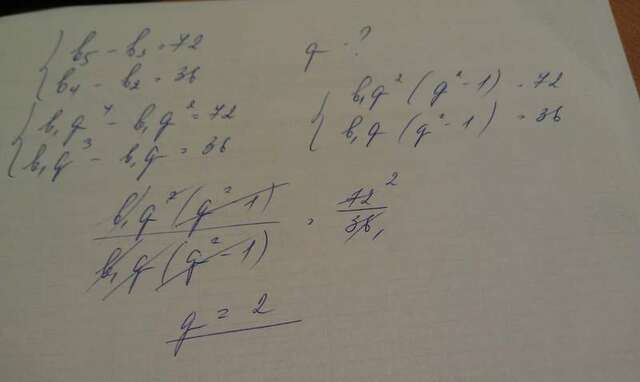 b₅ - b₃ = 72
b₄ - b₂ = 36
q - ?
b₁q⁴ - b₁q² = 72
b₁q³ - b₁q = 36
b₁q² (q² - 1) = 72
b₁q (q² - 1) = 36
b₁q² (q² - 1) / b₁q (q² - 1) = 72 2 / 36 1
q = 2